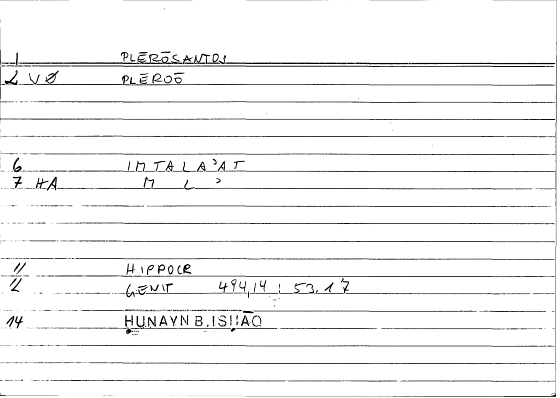 1 PLĒRŌSANTOS
2 VØ PLĒROŌ
6 IMTALAʾAT
7 HA M L ʾ
11 HIPPOCR
12 GENIT 494,14 : 53.17
14 ḤUNAYN B. ISḤĀQ